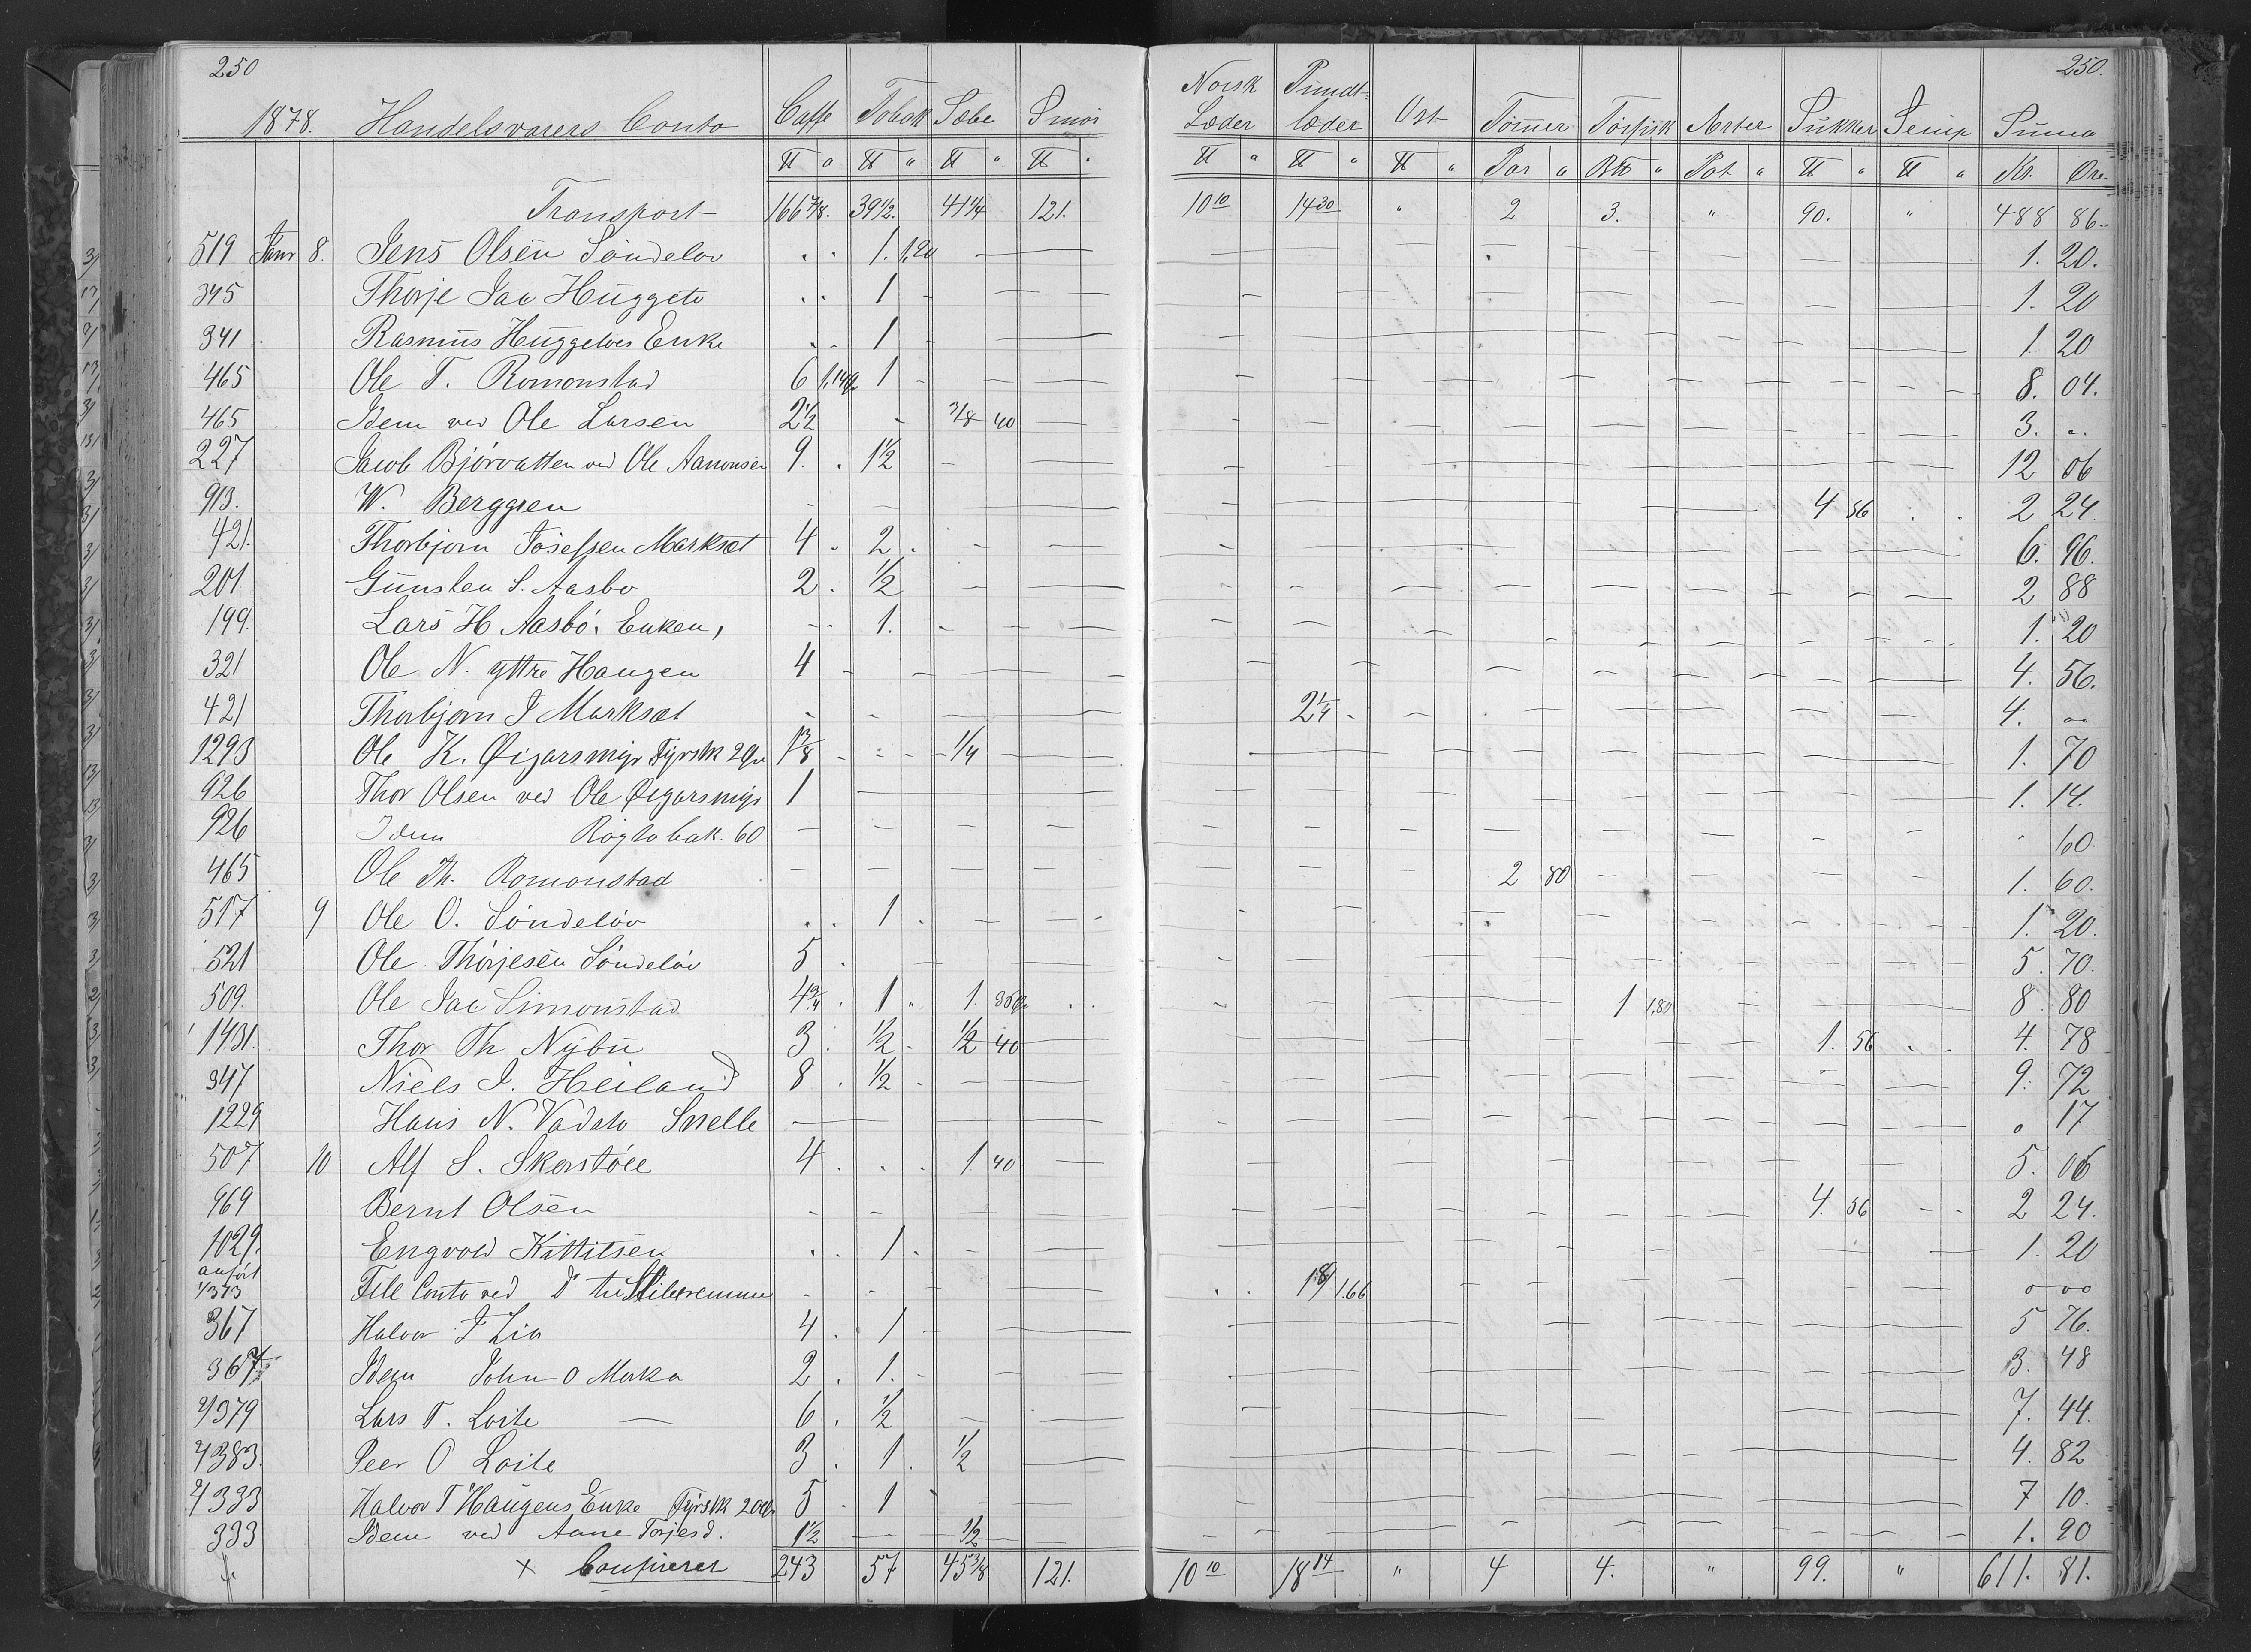 250 250.
1878. Handelsvarers Conto Caffe Tobak Sæbe Smør Norsk Læder Pundtlæder Ost Tømer Tørfisk Ærter Sukker Semp Summa
℔ " ℔ " ℔ " ℔ " ℔ " ℔ " ℔ " Par " B℔ " Pot " ℔ " ℔ " Kr. Øre
Transport 166 7/8. 39 1/2. 41 1/4 121. 10 10 14 30 " 2 3. " 90. " 488 86.
519 Janr 8. Jens Olsen Söndelöv 1. 1,20 1. 20.
345 Thorje Jac Huggeto 1 1. 20
341 Rasmus Huggetoes Enke 1 1. 20
465 Ole T. Romonstad 6 1,14 1 8. 04.
465 Idem ved Ole Larsen 2 1/2 3/8 40 3. "
227 Jacob Bjørvatten ved Ole Aanonsen 9. 1 1/2 12 06
913. W. Berggren 4 56 2 24.
421. Thorbjørn Josefsen Marksæt 4 2 6. 96.
201 Gunsten S. Aasbø 2. 1/2 2 88
199. Lars H Aasbö, Enken, 1. 1. 20
321 Ole N. yttre Haugen 4 4. 56.
421 Thorbjørn J Marksæt 2 1/4 4. oo
1293 Ole K. Øigarsmyr Tyrsk 20 1 3/8 1/4 1. 70
926 Thor Olsen ved Ole Øigarsmyr 1 1. 14.
926 Idem Røgtobak. 60 60.
465 Ole Th. Romonstad 2 80 1. 60.
517 9 Ole O. Söndelöv 1 1. 20.
521 Ole Thorjesen Söndelöv 5 5. 70.
509. Ole Jac Simonstad 4 3/4 1 1. 35 1 1,80 8. 80
1431. Thor Th Nybu 3 1/2 1/2 40 1. 56 4. 78
347 Niels J. Heiland 8 1/2 9. 72
1229 Hans N. Vadsto Snelle o 17
507 10 Alf S. Skorstöll 4 1. 40 5. 06
969 Bernt Olsen 4. 56 2 24.
1029. Engvold Kittilsen 1. 1. 20
anført
1/373 Till Conto ved 1,66 o oo
367 Halvor J Lia 4 1 5 76.
367 Idem John O Morka 2. 1. 3. 48
4379 Lars T. Loite 6 1/2 7. 44.
4383. Peer O Loite 3. 1. 1/2 4. 82
4333 Halvor T Haugens Enke Tyrsk 20 5 1 7 10.
333 Idem ved Anne Torjesd. 1 1/2 1/2 1. 90
x Confirerer 243 57 45 3/8 121. 10 10 18 14 " 4 4. " 99. " 611. 81.